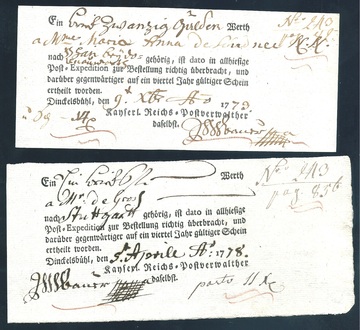 Ein Brief Zwanzig Gulden Werth No. 240
a Mme. Maria Anna de
nach gehörig, ist dato in allhiesige
Post-Expedition zur Bestellung richtig überbracht, und
darüber gegenwärtiger auf ein viertel Jahr gültiger Schein
ertheilt worden.
Dinckelsbühl, den 9t Xbr. Ao 1773.
Kayserl. Reichs-Postverwalther
daselbst.
Ein Brief Werth No. 243
a Mr. de pag. 856
nach Stuttgart gehörig, ist dato in allhiesige
Post-Expedition zur Bestellung richtig überbracht, und
darüber gegenwärtiger auf ein viertel Jahr gültiger Schein
ertheilt worden.
Dinckelsbühl, den Aprill Ao. 1778.
Kayserl. Reichs-Postverwalther
daselbst.
porto